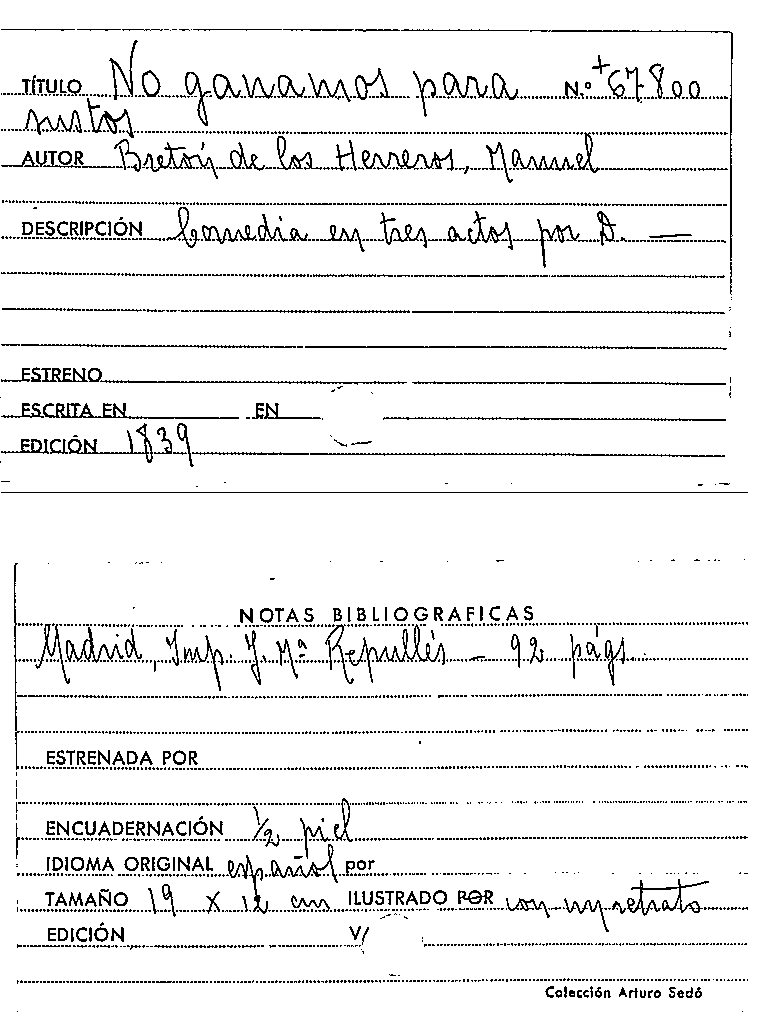 TÍTULO No ganamos para N.º +67800
sustos
AUTOR Bretón de los Herreros, Manuel
DESCRIPCIÓN Comedia en tres actos por D. —
ESTRENO
ESCRITA EN EN
EDICIÓN 1839
NOTAS BIBLIOGRAFICAS
Madrid, Imp. J. Mª Repullés - 92 págs.
ESTRENADA POR
ENCUADERNACIÓN 1/2 piel
IDIOMA ORIGINAL español por
TAMAÑO 19 x 12 cm ILUSTRADO POR con un retrato
EDICIÓN V/
Colección Arturo Sedó